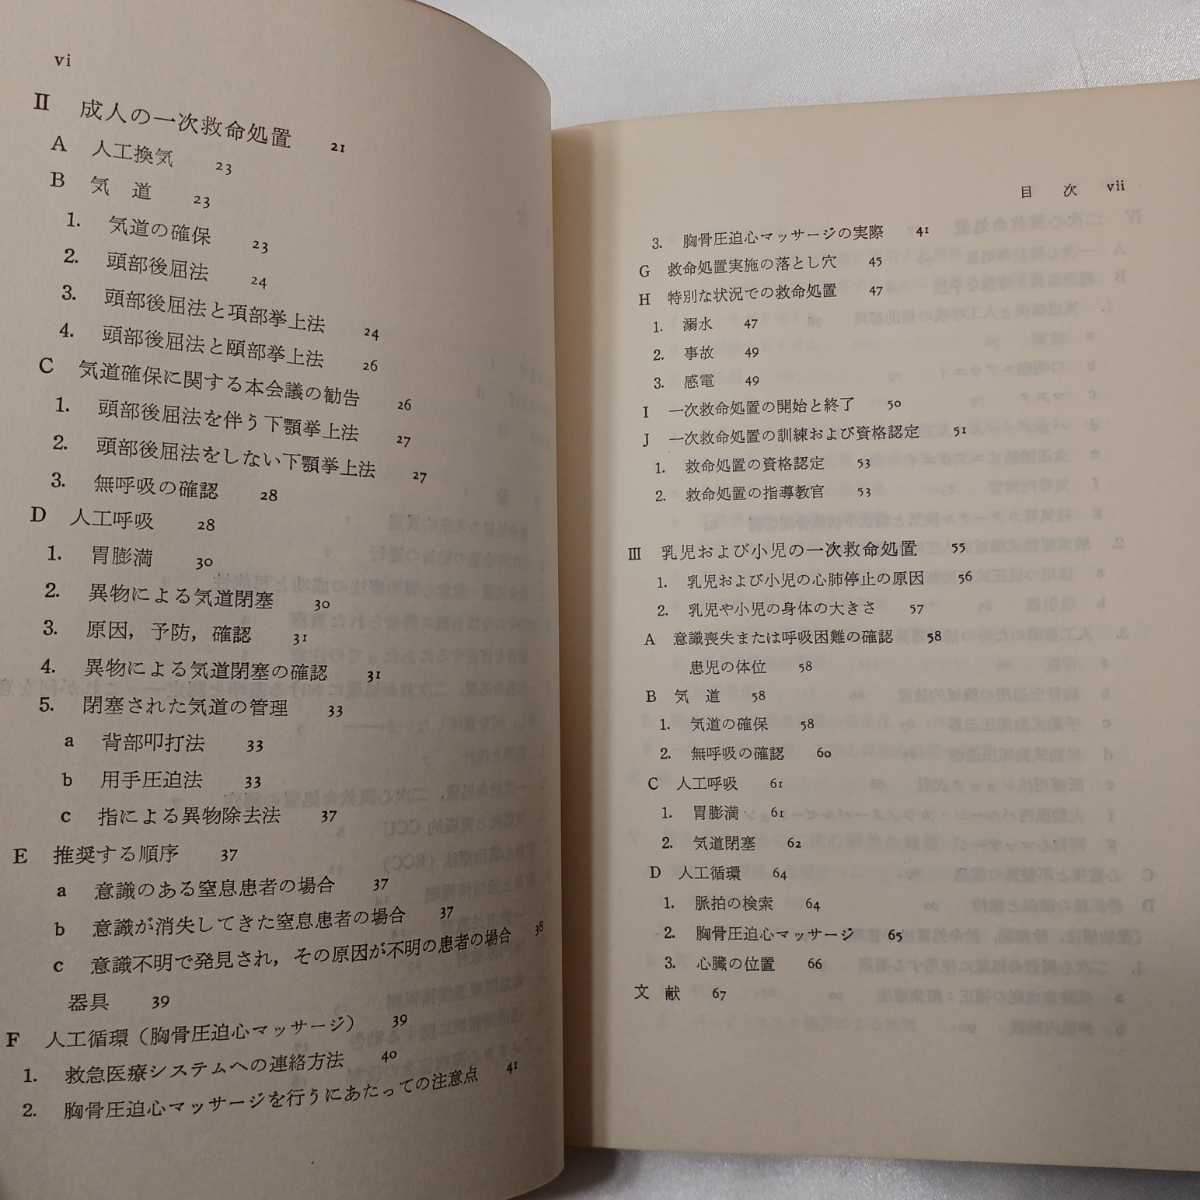 vi
II 成人の一次救命処置 21
A 人工換気 23
B 気 道 23
1. 気道の確保 23
2. 頭部後屈法 24
3. 頭部後屈法と項部挙上法 24
4. 頭部後屈法と頤部挙上法 26
C 気道確保に関する本会議の勧告 26
1. 頭部後屈法を伴う下顎挙上法 27
2. 頭部後屈法をしない下顎挙上法 27
3. 無呼吸の確認 28
D 人工呼吸 28
1. 胃膨満 30
2. 異物による気道閉塞 30
3. 原因，予防，確認 31
4. 異物による気道閉塞の確認 31
5. 閉塞された気道の管理 33
a 背部叩打法 33
b 用手圧迫法 33
c 指による異物除去法 37
E 推奨する順序 37
a 意識のある窒息患者の場合 37
b 意識が消失してきた窒息患者の場合 37
c 意識不明で発見され，その原因が不明の患者の場合 38
器具 39
F 人工循環（胸骨圧迫心マッサージ） 39
1. 救急医療システムへの連絡方法 40
2. 胸骨圧迫心マッサージを行うにあたっての注意点 41
目 次 vii
3. 胸骨圧迫心マッサージの実際 41
G 救命処置実施の落とし穴 45
H 特別な状況での救命処置 47
1. 溺水 47
2. 事故 49
3. 感電 49
I 一次救命処置の開始と終了 50
J 一次救命処置の訓練および資格認定 51
1. 救命処置の資格認定 53
2. 救命処置の指導教官 53
III 乳児および小児の一次救命処置 55
1. 乳児および小児の心肺停止の原因 56
2. 乳児や小児の身体の大きさ 57
A 意識喪失または呼吸困難の確認 58
患児の体位 58
B 気 道 58
1. 気道の確保 58
2. 無呼吸の確認 60
C 人工呼吸 61
1. 胃膨満 61
2. 気道閉塞 62
D 人工循環 64
1. 脈拍の検索 64
2. 胸骨圧迫心マッサージ 65
3. 心臓の位置 66
文 献 67